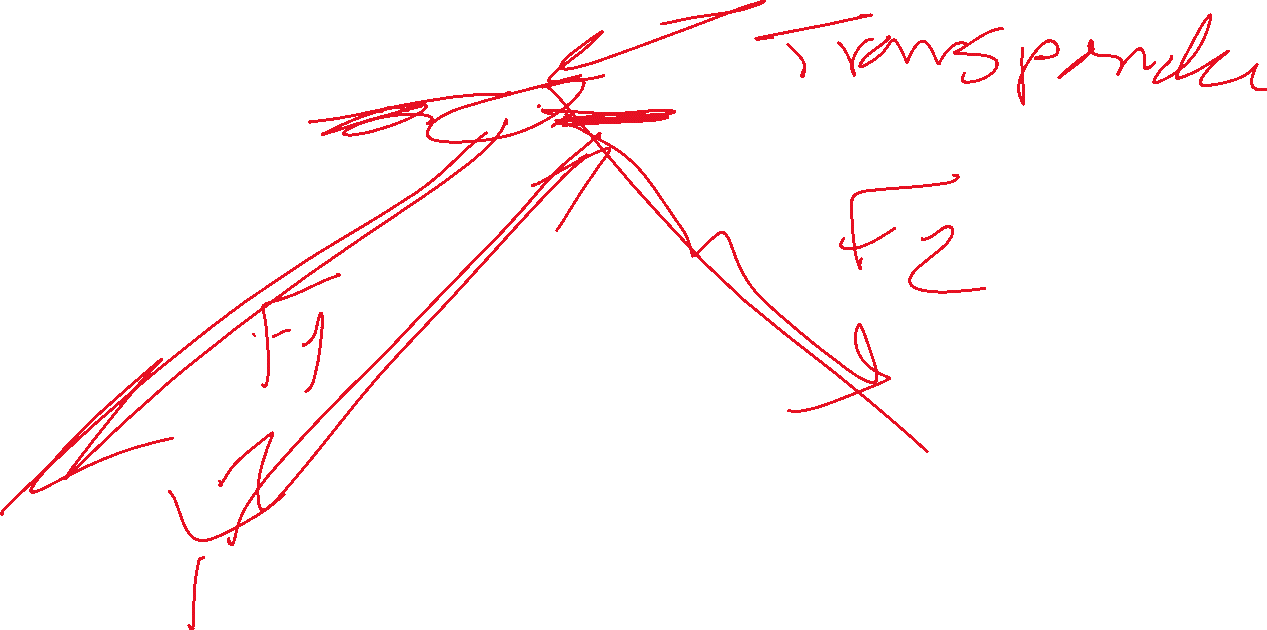 Transponder
F2
F1